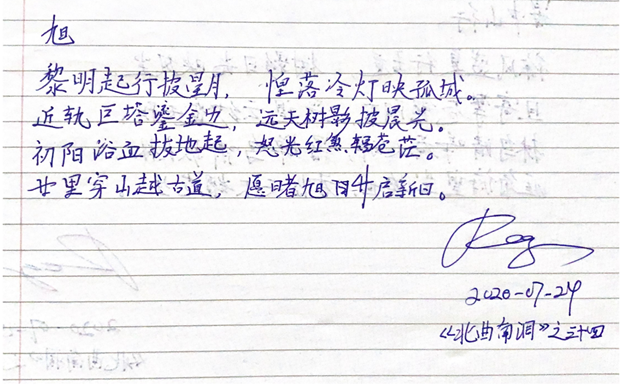 旭
黎明起行披星月，惶落冷灯映孤城。
近轨巨塔鎏金边，远天树影披晨光。
初阳浴血拔地起，怒光红煞耀苍茫。
廿里穿山越古道，愿睹旭日升启新日。
2020-07-24
《北曲南洞》之三十四